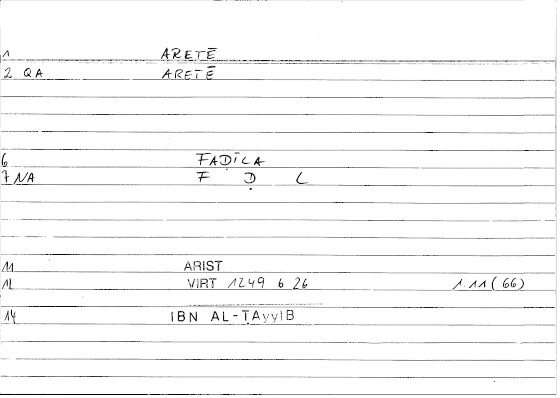 1 ARETĒ
2 QA ARETĒ
6 FAḌĪLA
7 NA F Ḍ L
11 ARIST
12 VIRT 1249 b 26 1.11 (66)
14 IBN AL-ṬAyyIB